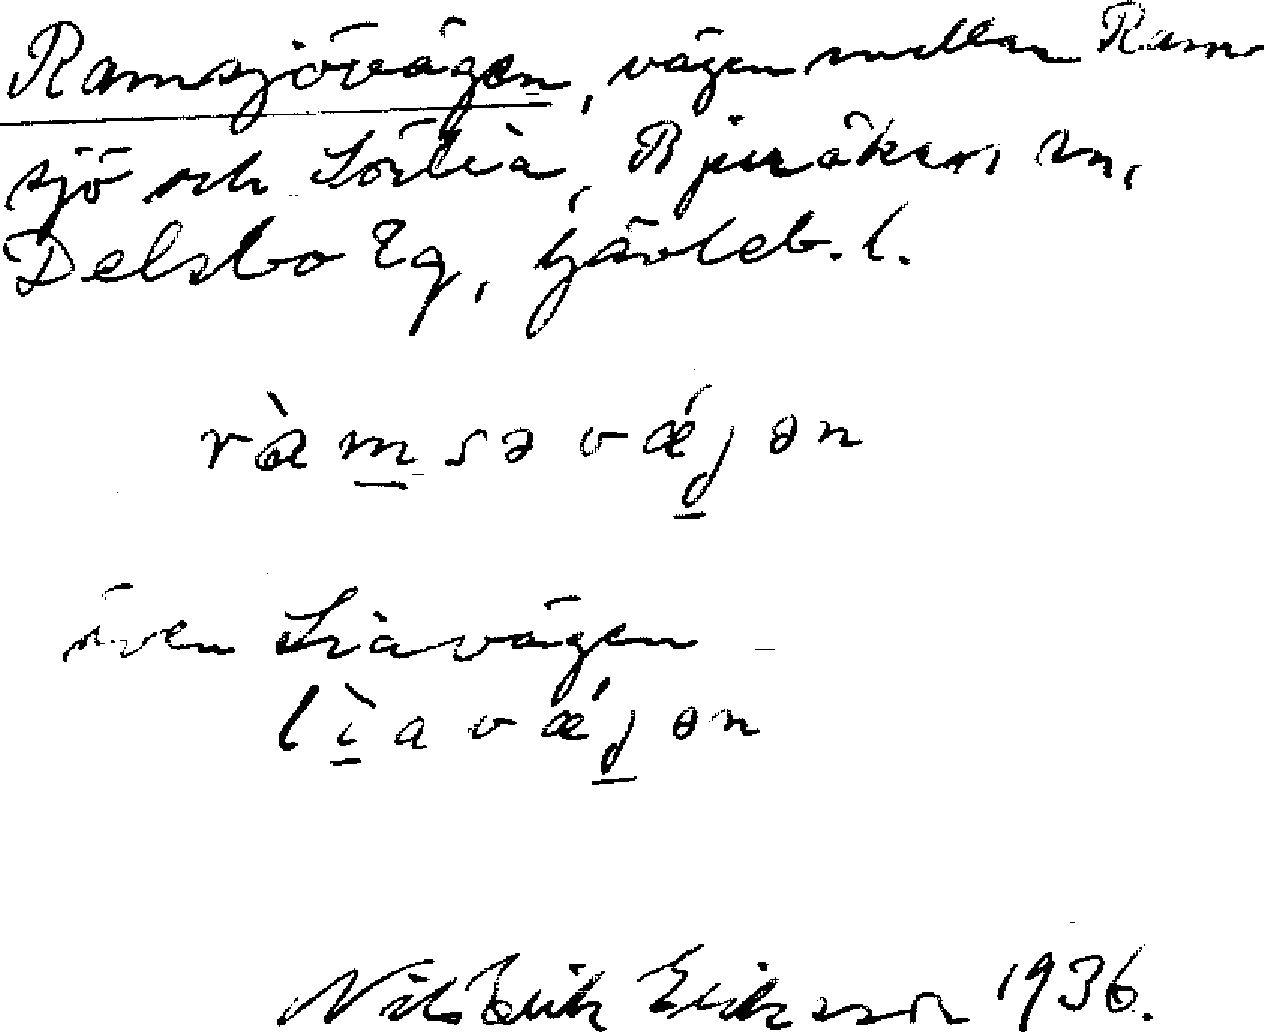 Ramsjövägen, vägen mellan Ram-
sjö och Sörlia, Bjuråkers sn,
Delsbo tg, Gävleb. l.
ràmsəvǽjən
även Liavägen
lìavǽjən
Nils Erik Eriksson 1936.